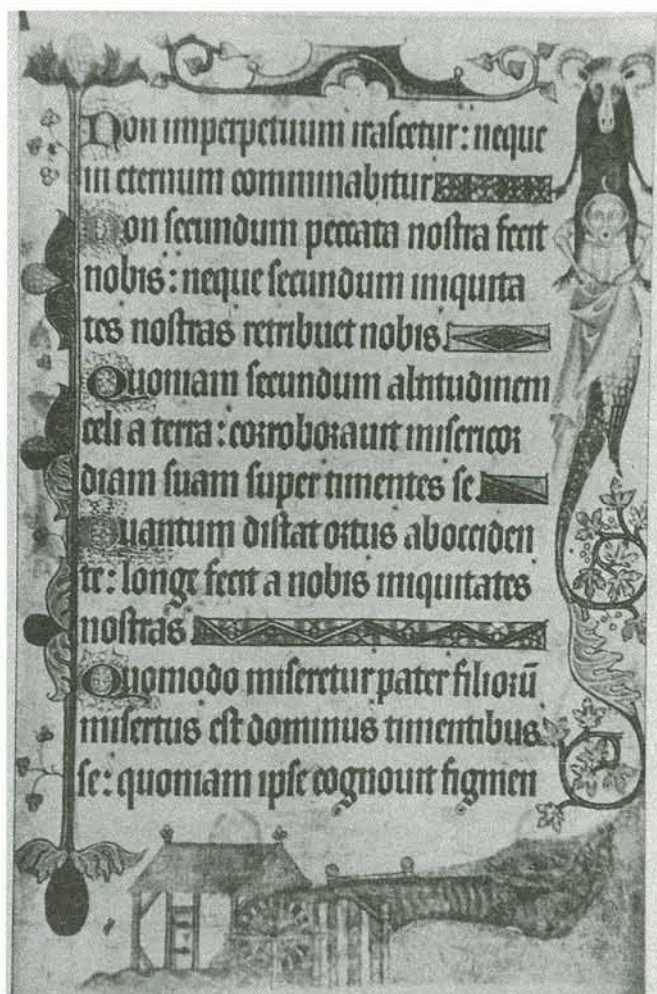 Non imperpetuum irascetur: neque
in eternum comminabitur
Non secundum peccata nostra fecit
nobis: neque secundum iniquita
tes nostras retribuet nobis.
Quoniam secundum altitudinem
celi a terra: corroborauit misericor
diam suam super timentes se.
Quantum distat ortus aboccidden
te: longe fecit a nobis iniquitates
nostras.
Quomodo miseretur pater filiorū
misertus est dominus timentibus
se: quoniam ipse cognouit figmen